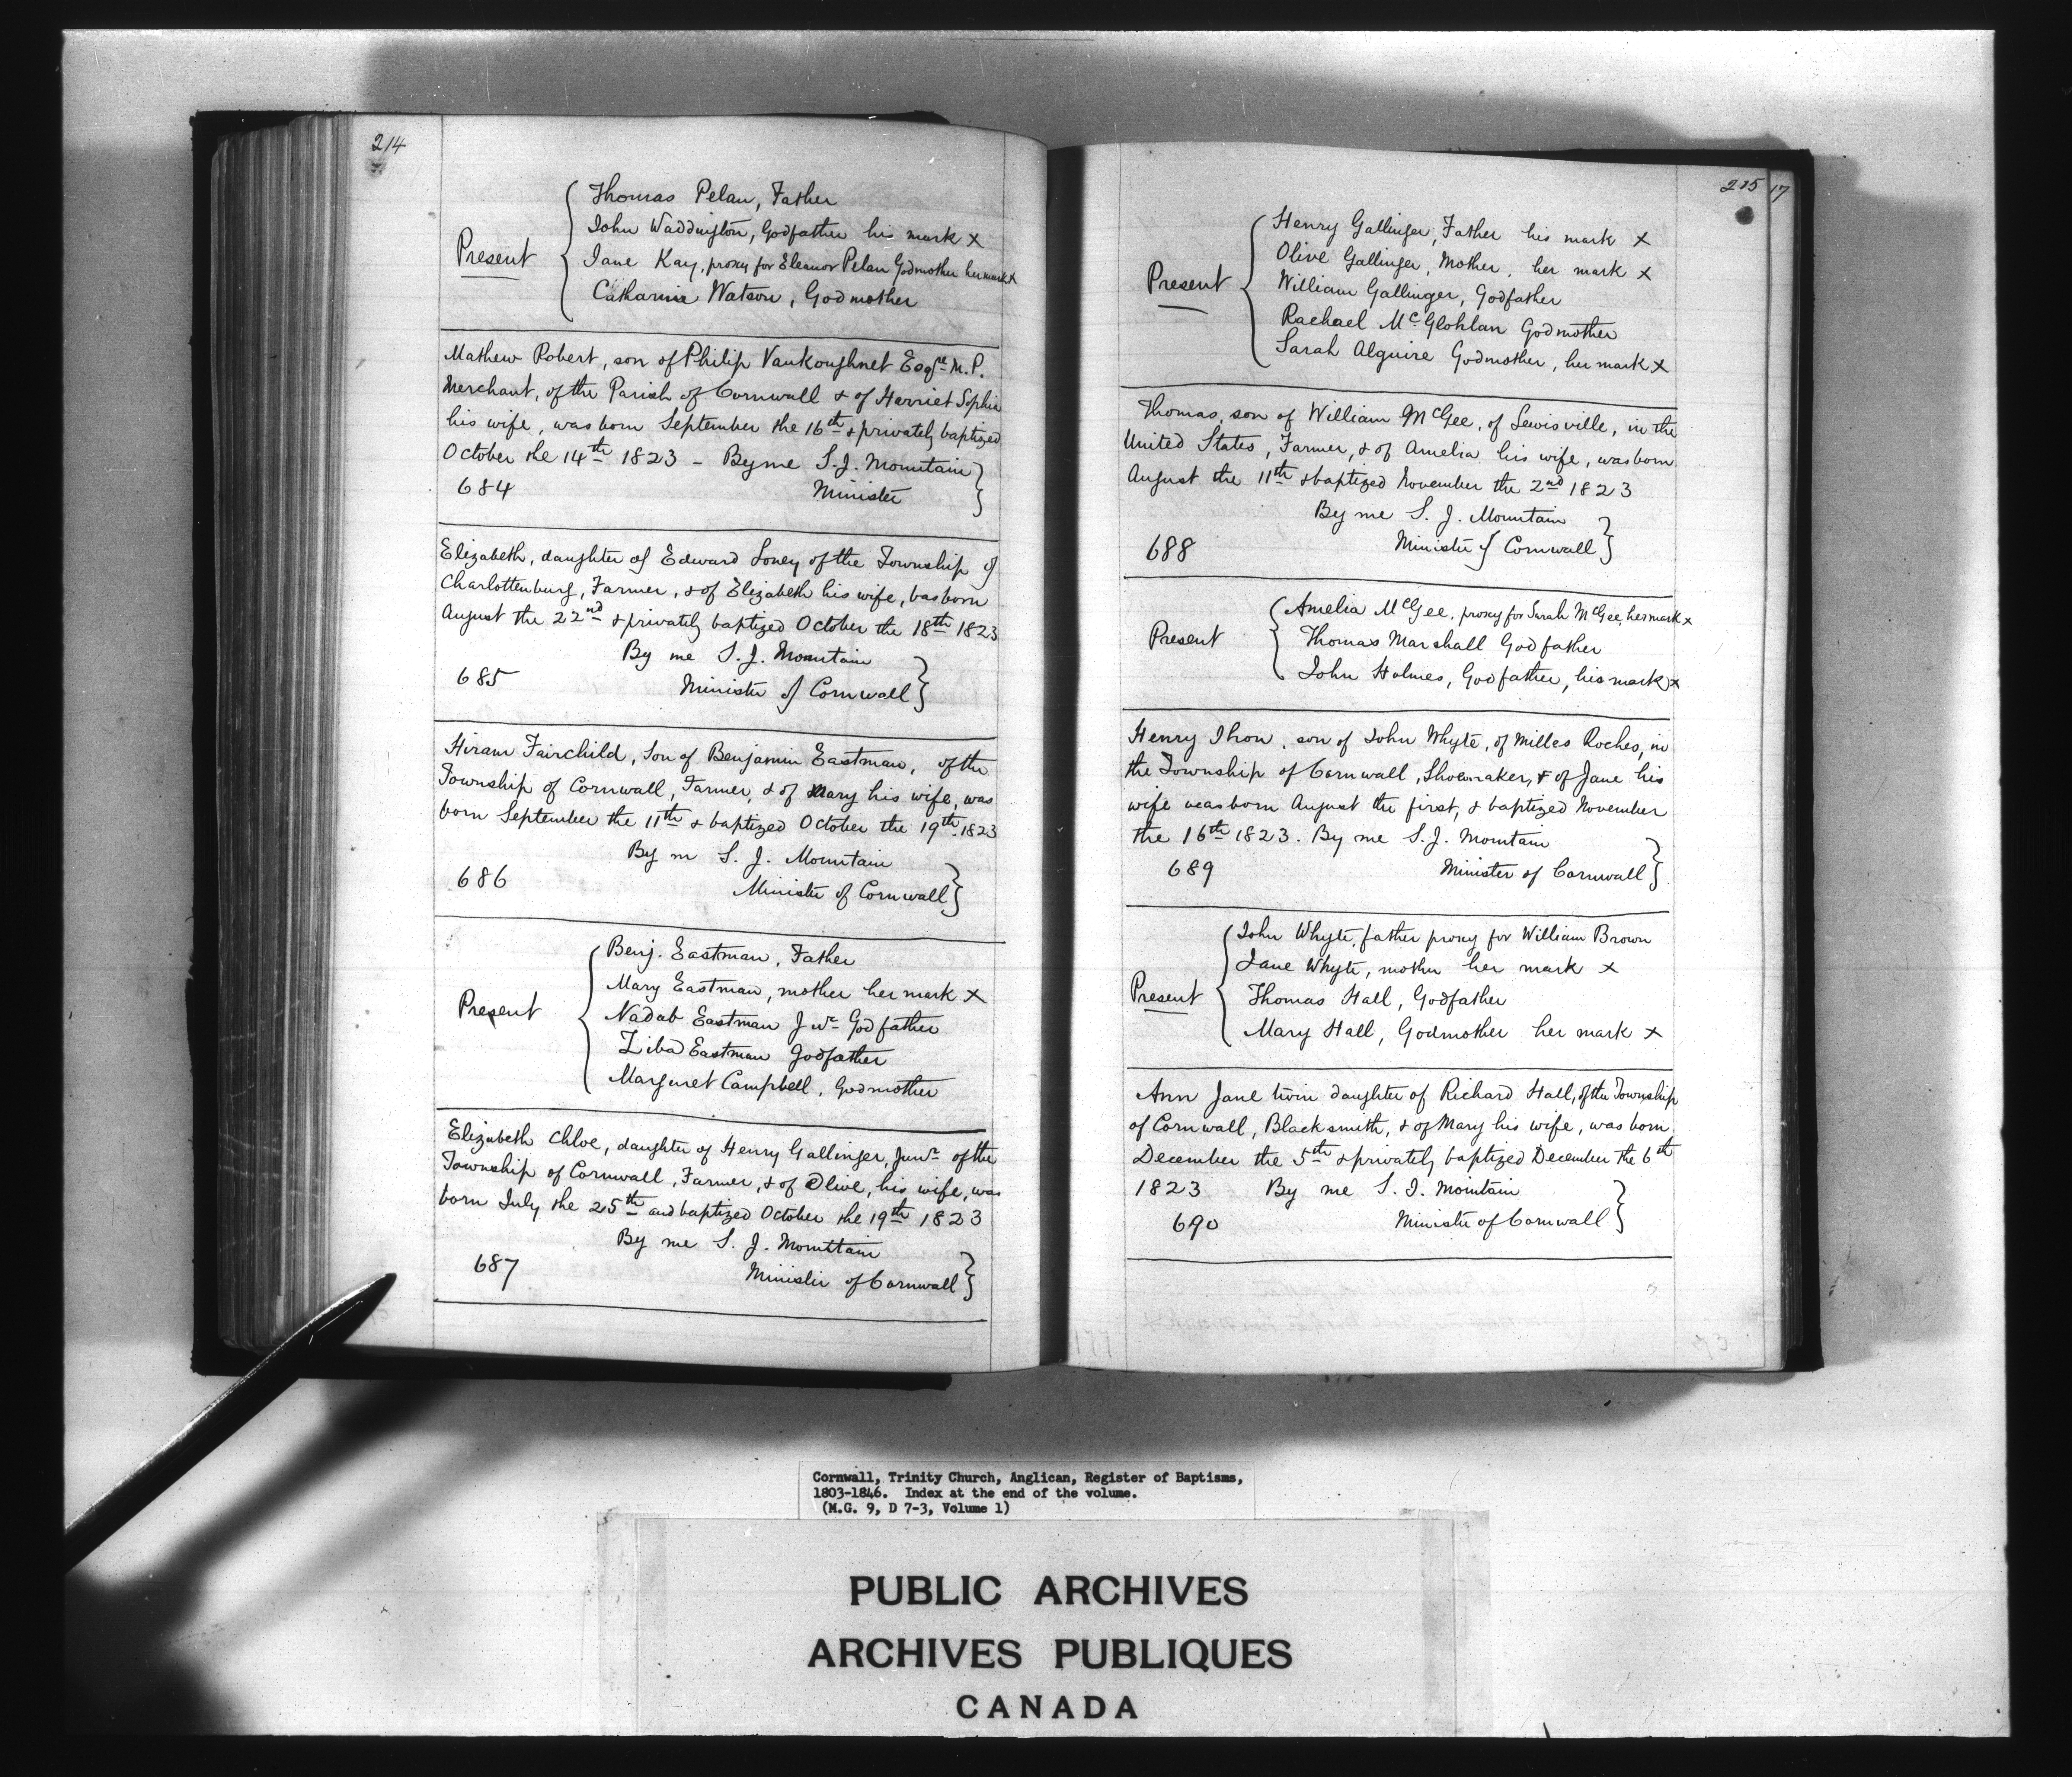 214
Thomas Pelan, Father
John Waddington, Godfather his mark x
Present
Jane Kay, proxy for Eleanor Pelan Godmother her mark x
Catharine Watson, Godmother
Mathew Robert, son of Philip Vankoughnet Esqre M.P.
Merchant, of the Parish of Cornwall & of Harriet Sophia
his wife, was born September the 16th & privately baptized
October the 14th 1823 - By me S.J. Mountain
684 Minister
Elizabeth, daughter of Edward Loney of the Township of
Charlottenburg, Farmer, & of Elizabeth his wife, was born
August the 22nd & privately baptized October the 18th 1823
By me S.J. Mountain
685 Minister of Cornwall
Hiram Fairchild, Son of Benjamin Eastman, of the
Township of Cornwall, Farmer, & of Mary his wife, was
born September the 11th & baptized October the 19th 1823
By m S. J. Mountain
686 Minister of Cornwall
Benj. Eastman, Father
Mary Eastman, mother her mark x
Present Nadab Eastman Junr Godfather
Ziba Eastman Godfather
Margaret Campbell, Godmother
Elizabeth Chloe, daughter of Henry Gallinger, Junr of the
Township of Cornwall, Farmer, & of Olive, his wife, was
born July the 25th and baptized October the 19th 1823
By me S. J. Mountain
687 Minister of Cornwall
215 17
Henry Gallinger, Father his mark x
Olive Gallinger, Mother, her mark x
Present William Gallinger, Godfather
Rachael McGlohlan Godmother
Sarah Alguire Godmother, her mark x
Thomas, son of William McGee, of Lewisville, in the
United States, Farmer, & of Amelia his wife, was born
August the 11th & baptized November the 2nd 1823
By me S. J. Mountain
688 Minister of Cornwall
Amelia McGee, proxy for Sarah McGee, her mark x
Present Thomas Marshall Godfather
John Holmes, Godfather, his mark x
Henry Ihon, son of John Whyte, of Milles Roches, in
the Township of Cornwall, Shoemaker, & of Jane his
wife was born August the first, & baptized November
the 16th 1823. By me S.J. Mountain
689 Minister of Cornwall
John Whyte, father proxy for William Brown
Jane Whyte, mother her mark x
Present Thomas Hall, Godfather
Mary Hall, Godmother her mark x
Ann Jane twin daughter of Richard Hall, of the Township
of Cornwall, Blacksmith, & of Mary his wife, was born
December the 5th & privately baptized December the 6th
1823 By me S. J. Mountain
690 Minister of Cornwall
177
Cornwall, Trinity Church, Anglican, Register of Baptisms,
1803-1846. Index at the end of the volume.
(M.G. 9, D 7-3, Volume 1)
PUBLIC ARCHIVES
ARCHIVES PUBLIQUES
CANADA